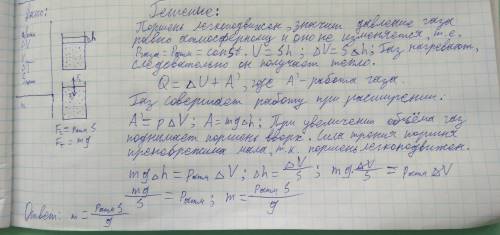 Дано:
Решение:
Поршень легкоподвижен, значит давление газа
равно атмосферному и оно не изменяется, т.е.
Pгаза = Pатм = const. V = Sh; ΔV = SΔh; Газ нагревают,
следовательно он получает тепло.
Q = ΔU + A', где A' - работа газа.
Газ совершает работу при расширении:
A' = pΔV; A = mgΔh; При увеличении объёма газ
поднимает поршень вверх. Сила трения поршня
пренебрежима мала, т.к. поршень легкоподвижен.
mgΔh = Pатм ΔV; Δh = ΔV/S; mg·ΔV/S = Pатм ΔV
mg/S = Pатм; m = Pатм S/g
Δh
F₁ = Pатм S
Fт = mg
Ответ: m = Pатм S/g